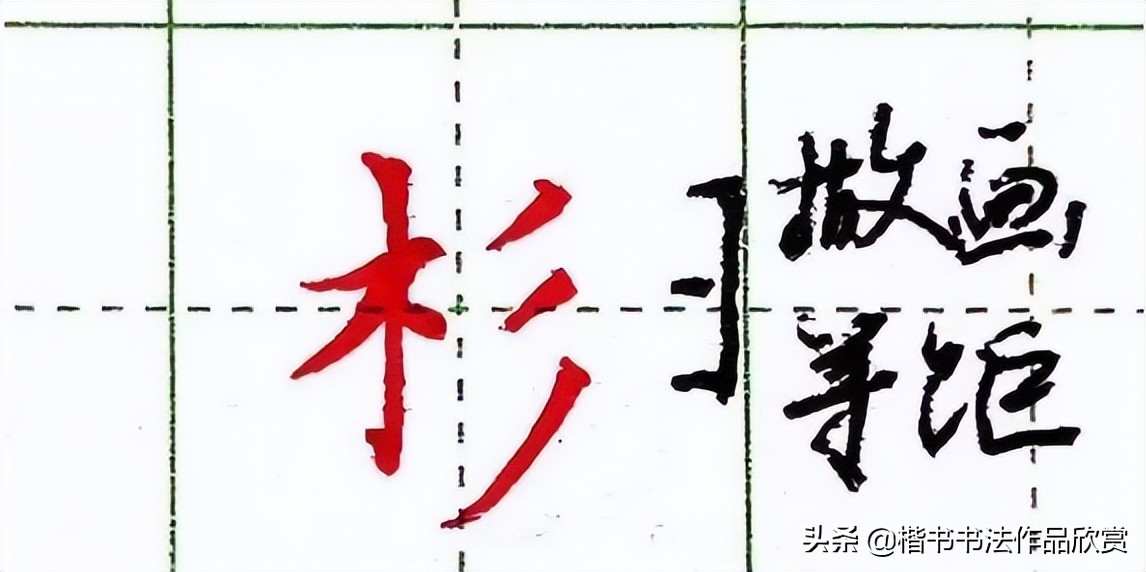 杉
撇画
等距
头条 @楷书书法作品欣赏